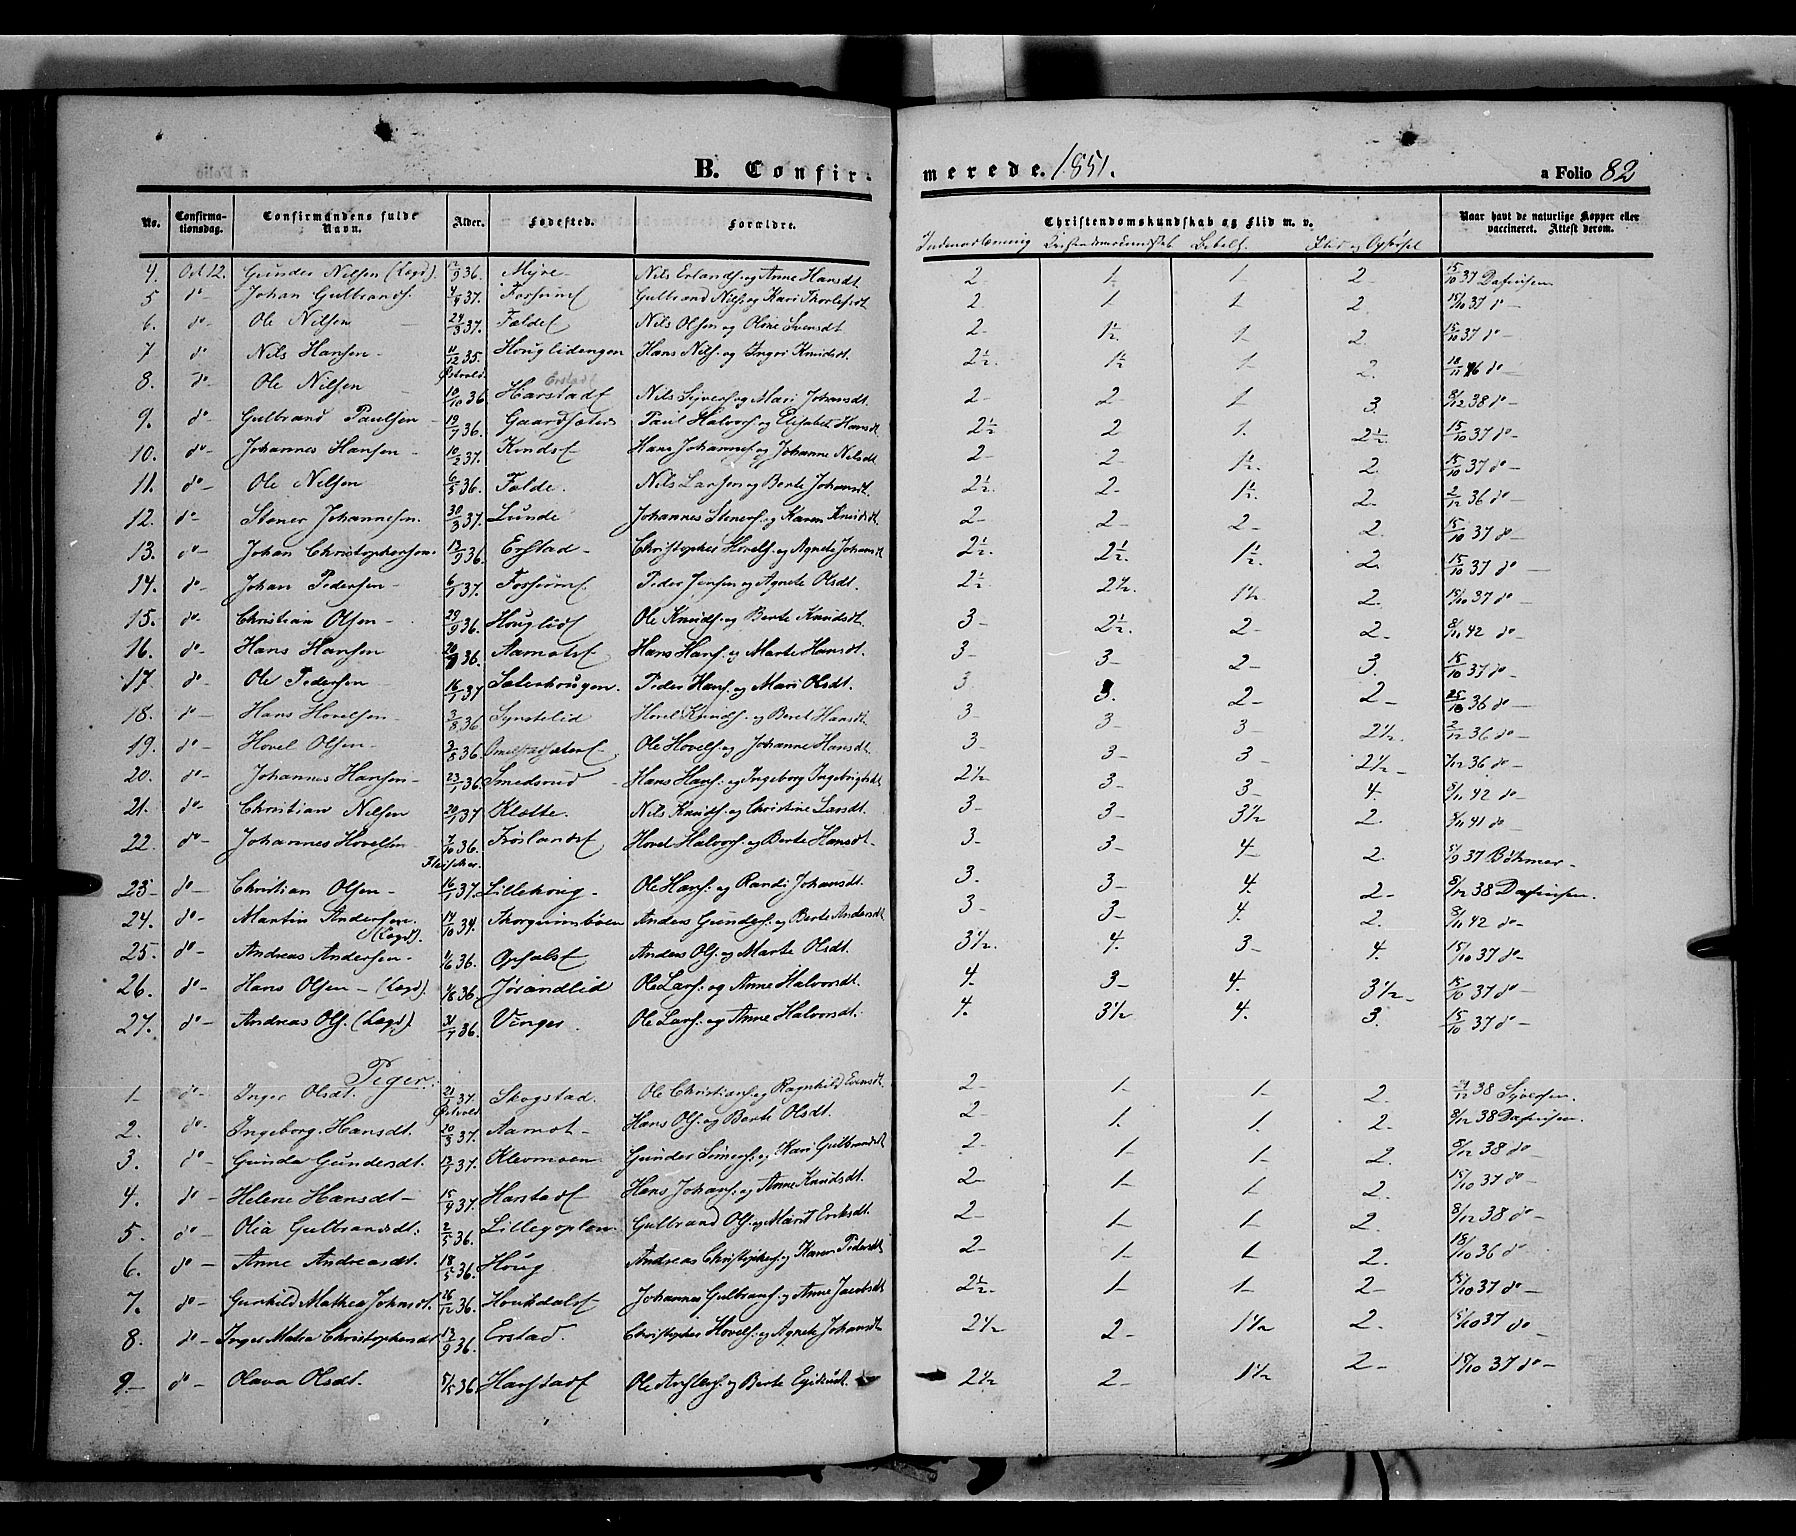 B. Confirmerede. 1851. a Folio 82
No. Confirmationsdag. Confirmandens fulde Navn. Alder. Fødested. Forældre. Christendomskundskab og Flid m. v. Naar havt de naturlige Kopper eller vaccineret. Attest derom.
Indenadlæsning Christendomskundskab Flid og Opførsel
4. Oct 12. Gunder Nilsen (Lægd). 36 Myre Nils Erlands. og Anne Hansdt 2 1 1 2 15/10 37
5 do Johan Gulbrands. 4/4 37. Fossums Gulbrand Nils. og Kari Thorlefsdt 2 1 1 2 15/10 37 do
6. do Ole Nilsen 24/3 37. Falde Nils Olsen og Oline Svensdt 2 1½ 1 2. 15/10 37 do
7 do Nils Hansen 11/12 35. Houglidengen Hans Nils. og Ingri Knudsdt. 2½ 1½ 1 2. 46 do
8. do Ole Nilsen 10/10 36 Harstads Erstads Nils Syvers. og Mari Johansdt. 2 2 1 3. 8/12 38 do
9. do Gulbrand Paulsen 19/7 36. Gaardsæter Paul Halvors. og Elisabet Hansdt 2½ 2 1. 2½ 15/10 37 do
10. do Johannes Hansen 10/2 37. Hans Johannes. og Johanne Nilsdt 2 2 1½ 2. 15/10 37 do
11. do Ole Nilsen 6/5 36. Falde. Nils Larsen og Berte Johansdt. 2½ 2 1½ 2. 2/12 36 do
12. do Stener Johannesen. 30/3 37. Lunde Johannes Steners. og Karen Knudsdt 2 2 2 2. 15/10 37 do
13. do Johan Christophersen. 13/9 36. Erstad Christopher Hovels. og Agnete Johansdt 2½ 2½ 1½ 2. 15/10 37 do
14. do Johan Pedersen 6/1 37. Fossums. Peder Jensen og Agnete Olsdt. 2½ 2½ 1½ 2. 15/10 37 do
15. do Christian Olsen 29/9 36. Houglids Ole Knuds. og Berte Knudsdt. 3 2½ 2 2 8/11 42 do
16. do Hans Hansen 36. Aamots Hans Hans. og Marte Hansdt. 3 3 2 3. 15/10 37 do
17 do Ole Pedersen 16/1 37 Sæterhougen. Peder Hans. og Mari Olsdt. 3. 3. 2 2 36 do
18. do Hans Hovelsen 3/8 36 Synstelid Hovel Knuds. og Beret Hansdt 3 3 3 2½ 2/12 36 do
19. do Hovel Olsen 3/8 36 Ole Hovels. og Johanne Hansdt. 3 3 3 2½ 36 do
20. do Johannes Hansen 23/1 36 Smedsrud Hans Hans. og Ingeborg Ingebrigtsdt 2½ 3 3 4. 8/11 42 do
21. do Christian Nilsen 20/1 37 Klætte. Nils Knuds. og Christine Larsdt. 3 3 3½ 2. 41 do
22. do Johannes Hovelsen 7/10 36. Frøslands Hovel Halvors. og Berte Hansdt. 3 3 4 2. 37 Böhmer
23 do Christian Olsen 16/1 37. Lillehoug Ole Hans. og Randi Johansdt. 3. 3 4. 2 8/12 38
24. do Martin Andersen (Lægd). 14/10 34. Thorgrimsbøen Anders Gunders. og Berte Andersdt 3 3 4. 2. 8/11 42 do
25. do Andreas Andersen 36. Opsals Anders Ols. og Marte Olsdt. 3½. 4. 3 4. 15/10 37 do
26. do Hans Olsen (Lægd). 36 Jørandlid Ole Lars. og Anne Halvorsdt. 4. 3 4. 3½ 15/10 37 do
27. do Andreas Ols. (Lægd). 31/7 36. Vinger. Ole Lars. og Anne Halvorsdt. 4. 3½ 4. 3. 15/10 37 do
Piger.
1 do Inger Olsdt. 21/1 37. Skogstad. Ole Christians. og Ragnhild Evensdt. 2 1 1 2. 38 Syversen.
2. do Ingeborg Hansdt. 20/3 37. Aamot Hans Ols. og Berte Olsdt. 2 1. 1. 2. 8/12 38
3. do Gunda Gundersdt. 13/1 37. Klevmoen. Gunder Simens. og Kari Gulbrandsdt 2 1 1 2. 8/12 38 do
4. do Helene Hansdt 15/4 37. Harstads Hans Johans. og Anne Knudsdt. 2 1 1 2. 15/10 37 do
5. do Olia Gulbrandsdt. 2/5 36. Lillegoplen. Gulbrand Ols. og Marit Eriksdt. 2 1 1 2. 8/12 38 do
6. do Anne Andreasdt. 18/5 36. Houg Andreas Christophers. og Karen Pedersdt 2 1 1 2. 18/10 36 do
7. do Gunhild Mathea Johnsdt. 26/12 36. Houkdals Johannes Gulbrans. og Anne Jacobsdt 2½ 1 1 2 15/10 37 do
8. do Inger Matia Christophersdt 13/9 36. Erstad. Christopher Hovels. og Agnete Johansdt 2½ 2 1½ 2. 15/10 37 do
9 do Olava Olsdt. 5/5 36 Harstads Ole og Berte 2½ 2 1½ 2 15/10 37 do